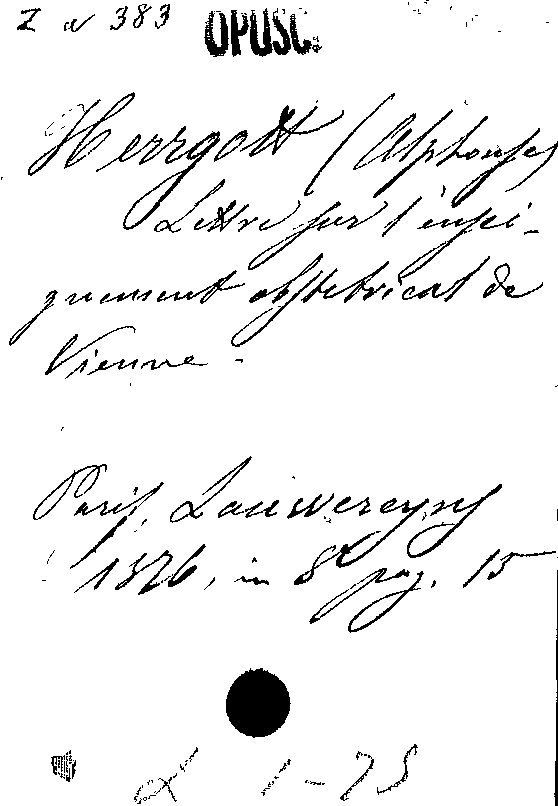 Z a 383 OPUSC.
Herrgott (Alphonse)
Lettre sur l'ensei-
gnement obstetrical de
Vienne.
Paris, Lauwereyns
1876, in 8º pag. 15
L 1-75